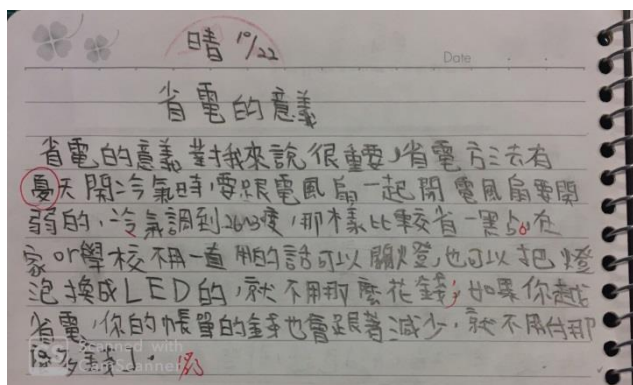 晴 10/22
Date
省電的意義
省電的意義對我來說很重要，省電方法有
夏天開冷氣時，要跟電風扇一起開 電風扇要開
弱的，冷氣調到26~28度，那樣比較省一點。在
家or學校不用一直用的話可以關燈，也可以把燈
泡換成LED的，就不用那麼花錢，如果你越
省電，你的帳單的錢也會跟著減少，就不用付那
麼多錢了。
Scanned with
CamScanner